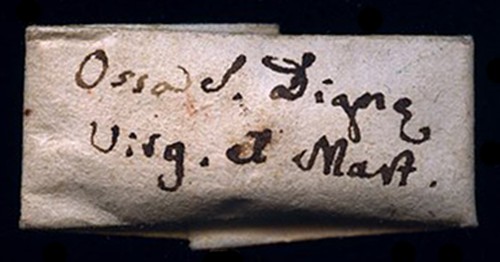 Ossa S. Dignę
Virg. et Mart.